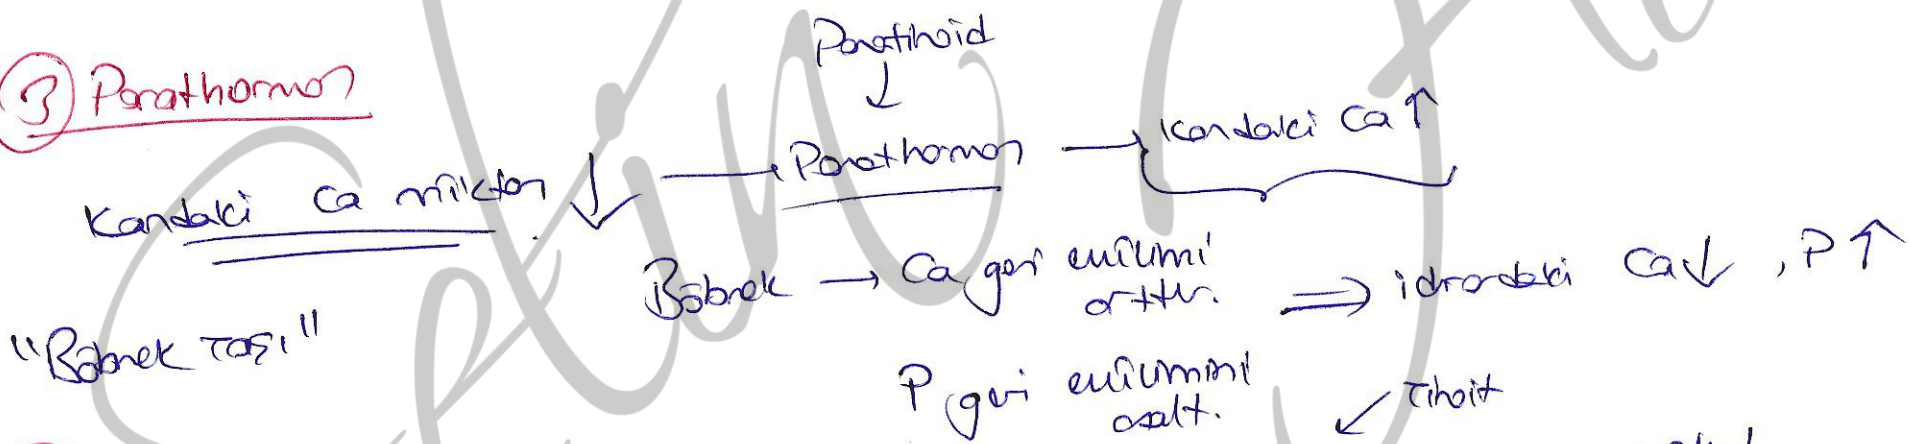 Paratiroid
↓
③ Parathormon
Kandaki Ca miktarı ↓ → Parathormon → Kandaki Ca ↑
Böbrek → Ca geri emilimi arttır. ⇒ idrardaki Ca ↓, P ↑
"Böbrek Taşı"
P geri emilimini azalt.
↙ Tiroit